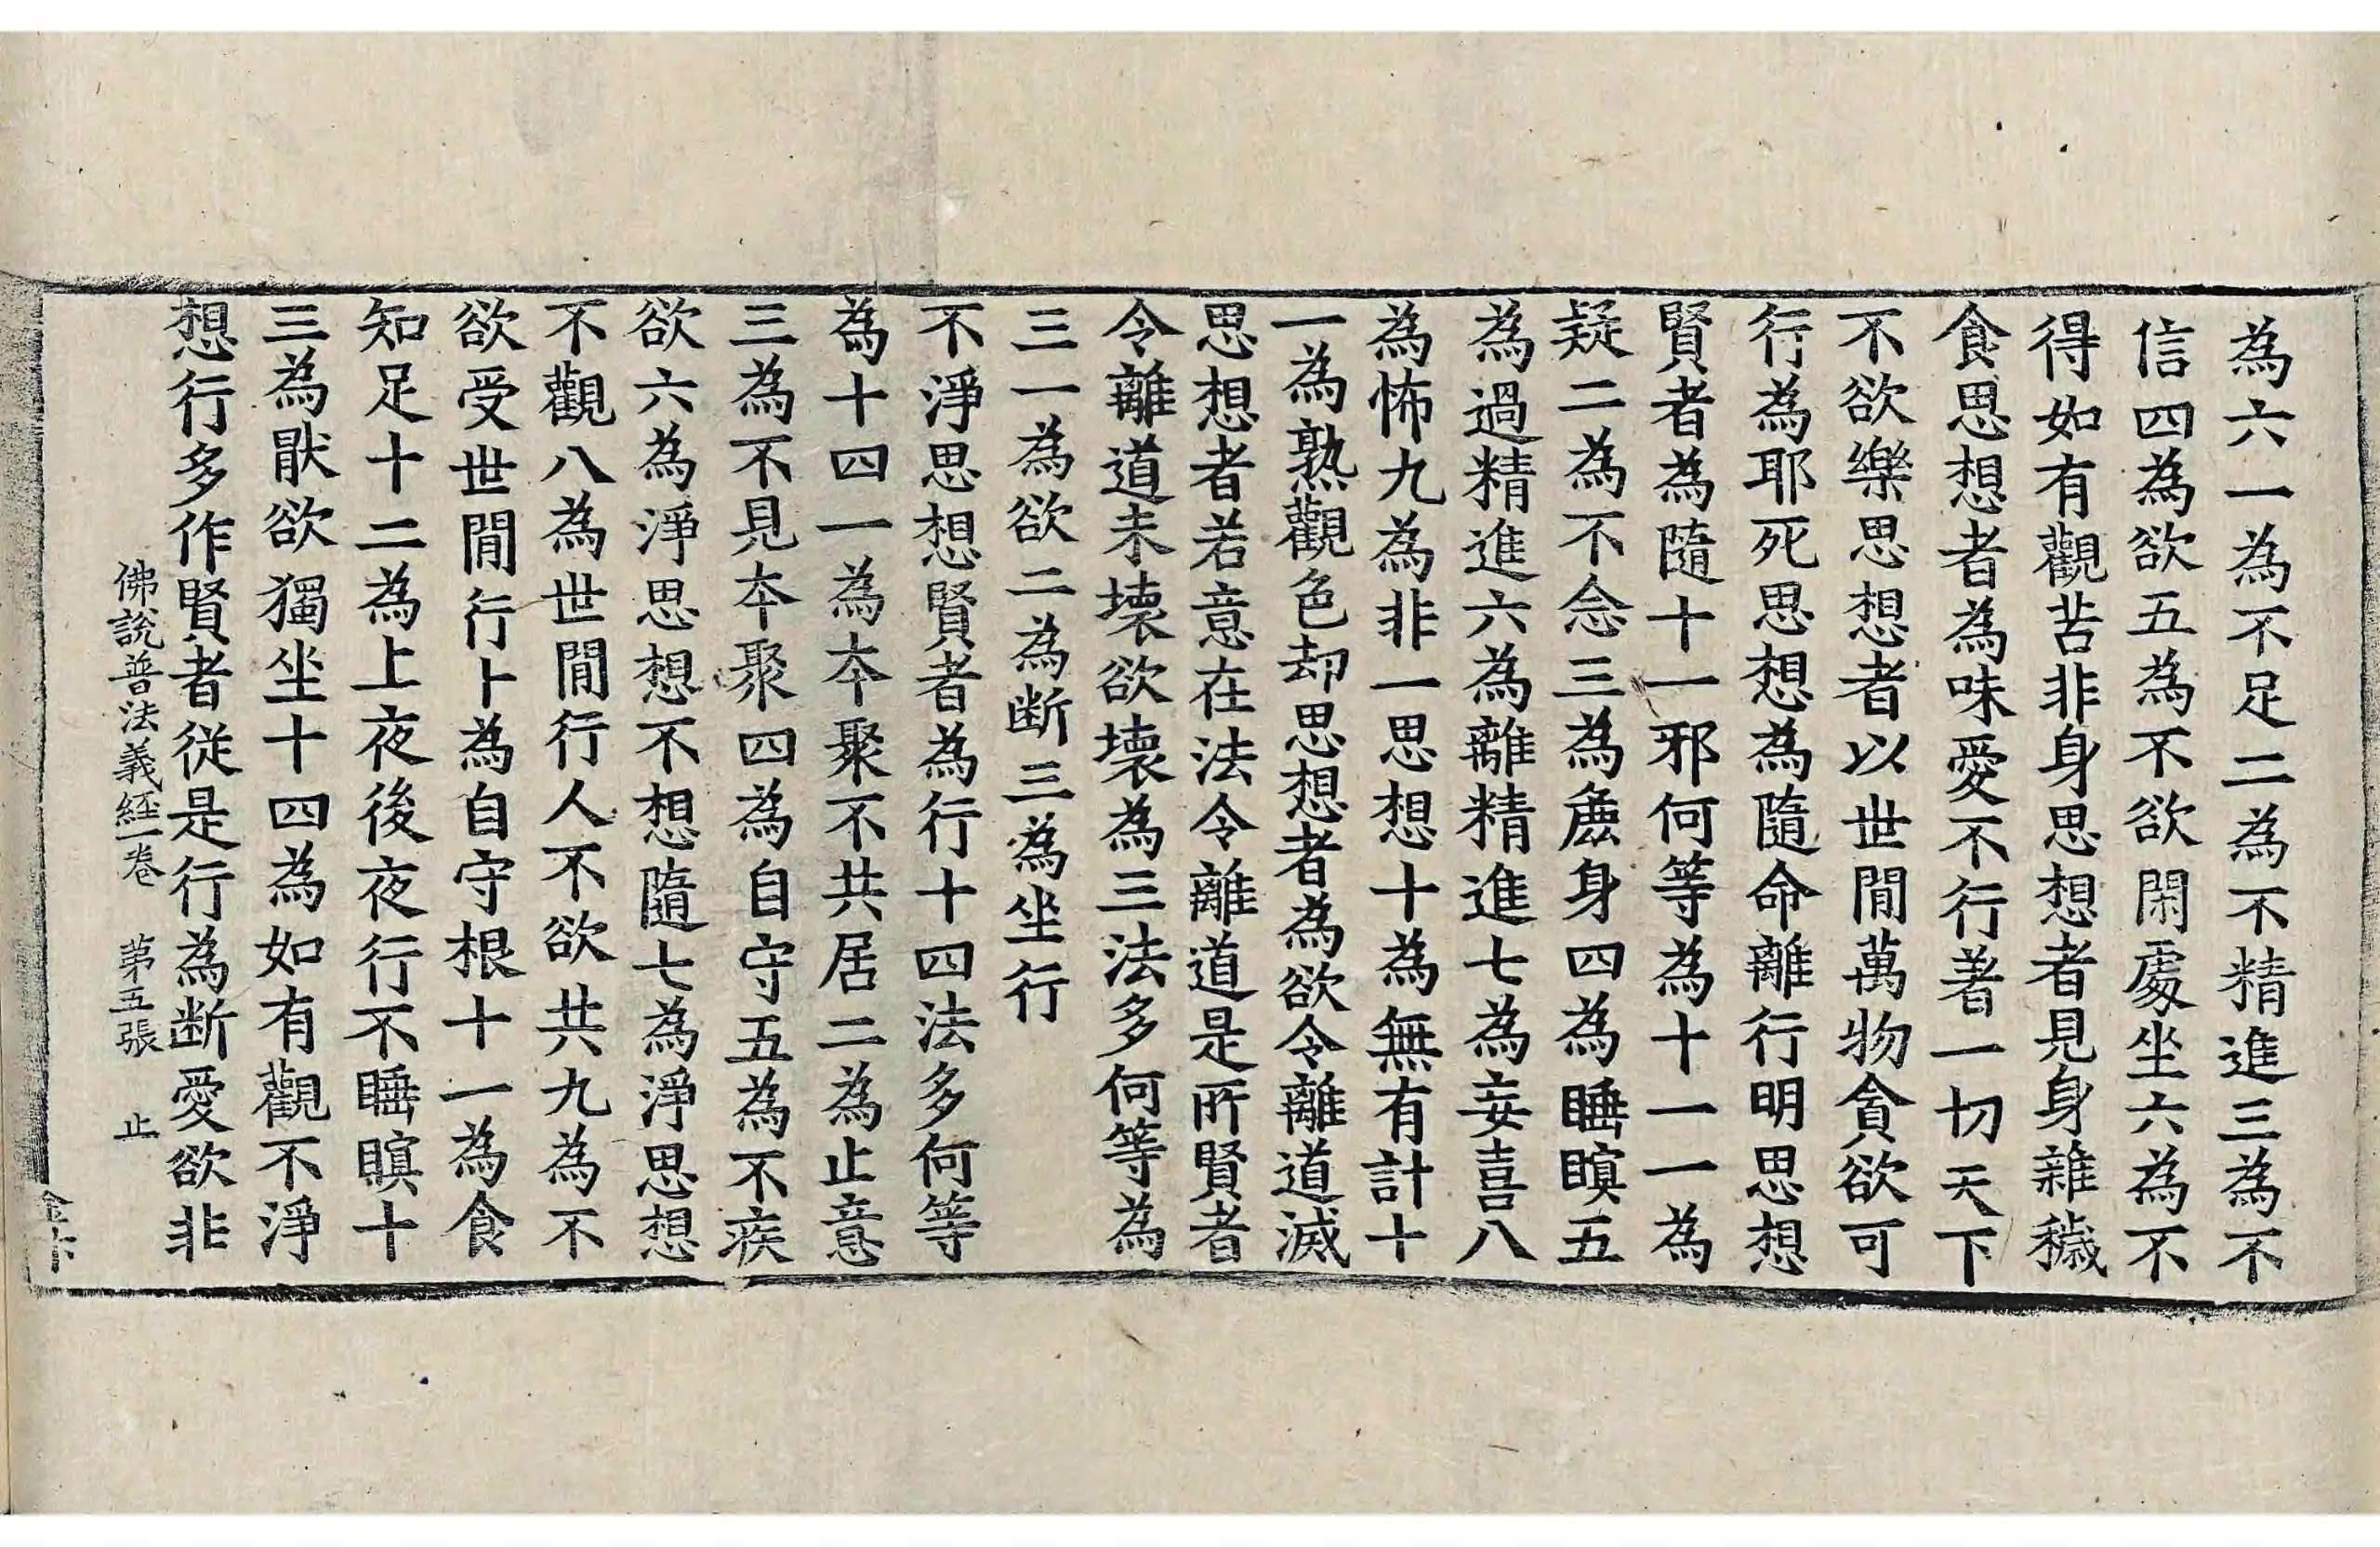 為六一為不足二為不精進三為不
信四為欲五為不欲閑處坐六為不
得如有觀苦非身思想者見身雜穢
食思想者為味愛不行著一切天下
不欲樂思想者以世間萬物貪欲可
行為耶死思想為隨命離行明思想
賢者為隨十一邪何等為十一一為
疑二為不念三為麁身四為睡瞑五
為過精進六為離精進七為妄喜八
為怖九為非一思想十為無有計十
一為熟觀色却思想者為欲令離道滅
思想者若意在法令離道是所賢者
令離道未壞欲壞為三法多何等為
三一為欲二為断三為坐行
不淨思想賢者為行十四法多何等
為十四一為夲聚不共居二為止意
三為不見夲聚四為自守五為不疾
欲六為淨思想不想隨七為淨思想
不觀八為世間行人不欲共九為不
欲受世間行十為自守根十一為食
知足十二為上夜後夜行不睡瞑十
三為猒欲獨坐十四為如有觀不淨
想行多作賢者從是行為断愛欲非
佛說普法義經一卷　苐五張　止